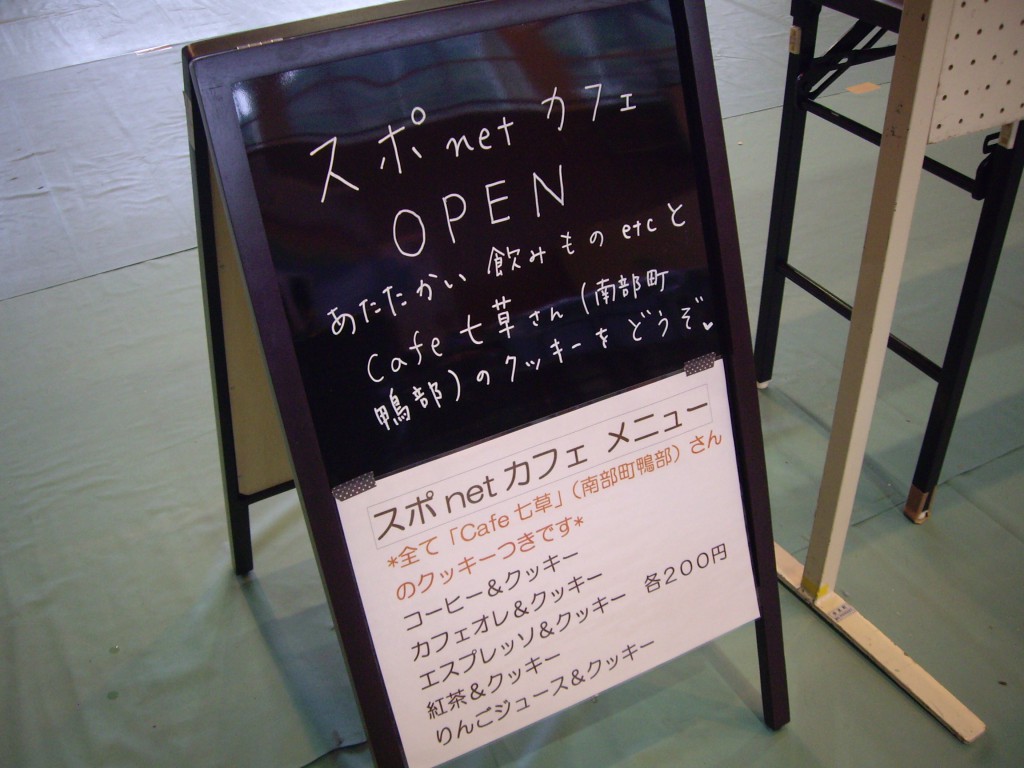 スポnetカフェ
OPEN
あたたかい飲みものetcと
Cafe七草さん(南部町
鴨部)のクッキーをどうぞ♥
スポnetカフェ メニュー
*全て「Cafe七草」(南部町鴨部)さん
のクッキーつきです*
コーヒー&クッキー
カフェオレ&クッキー
エスプレッソ&クッキー 各200円
紅茶&クッキー
りんごジュース&クッキー